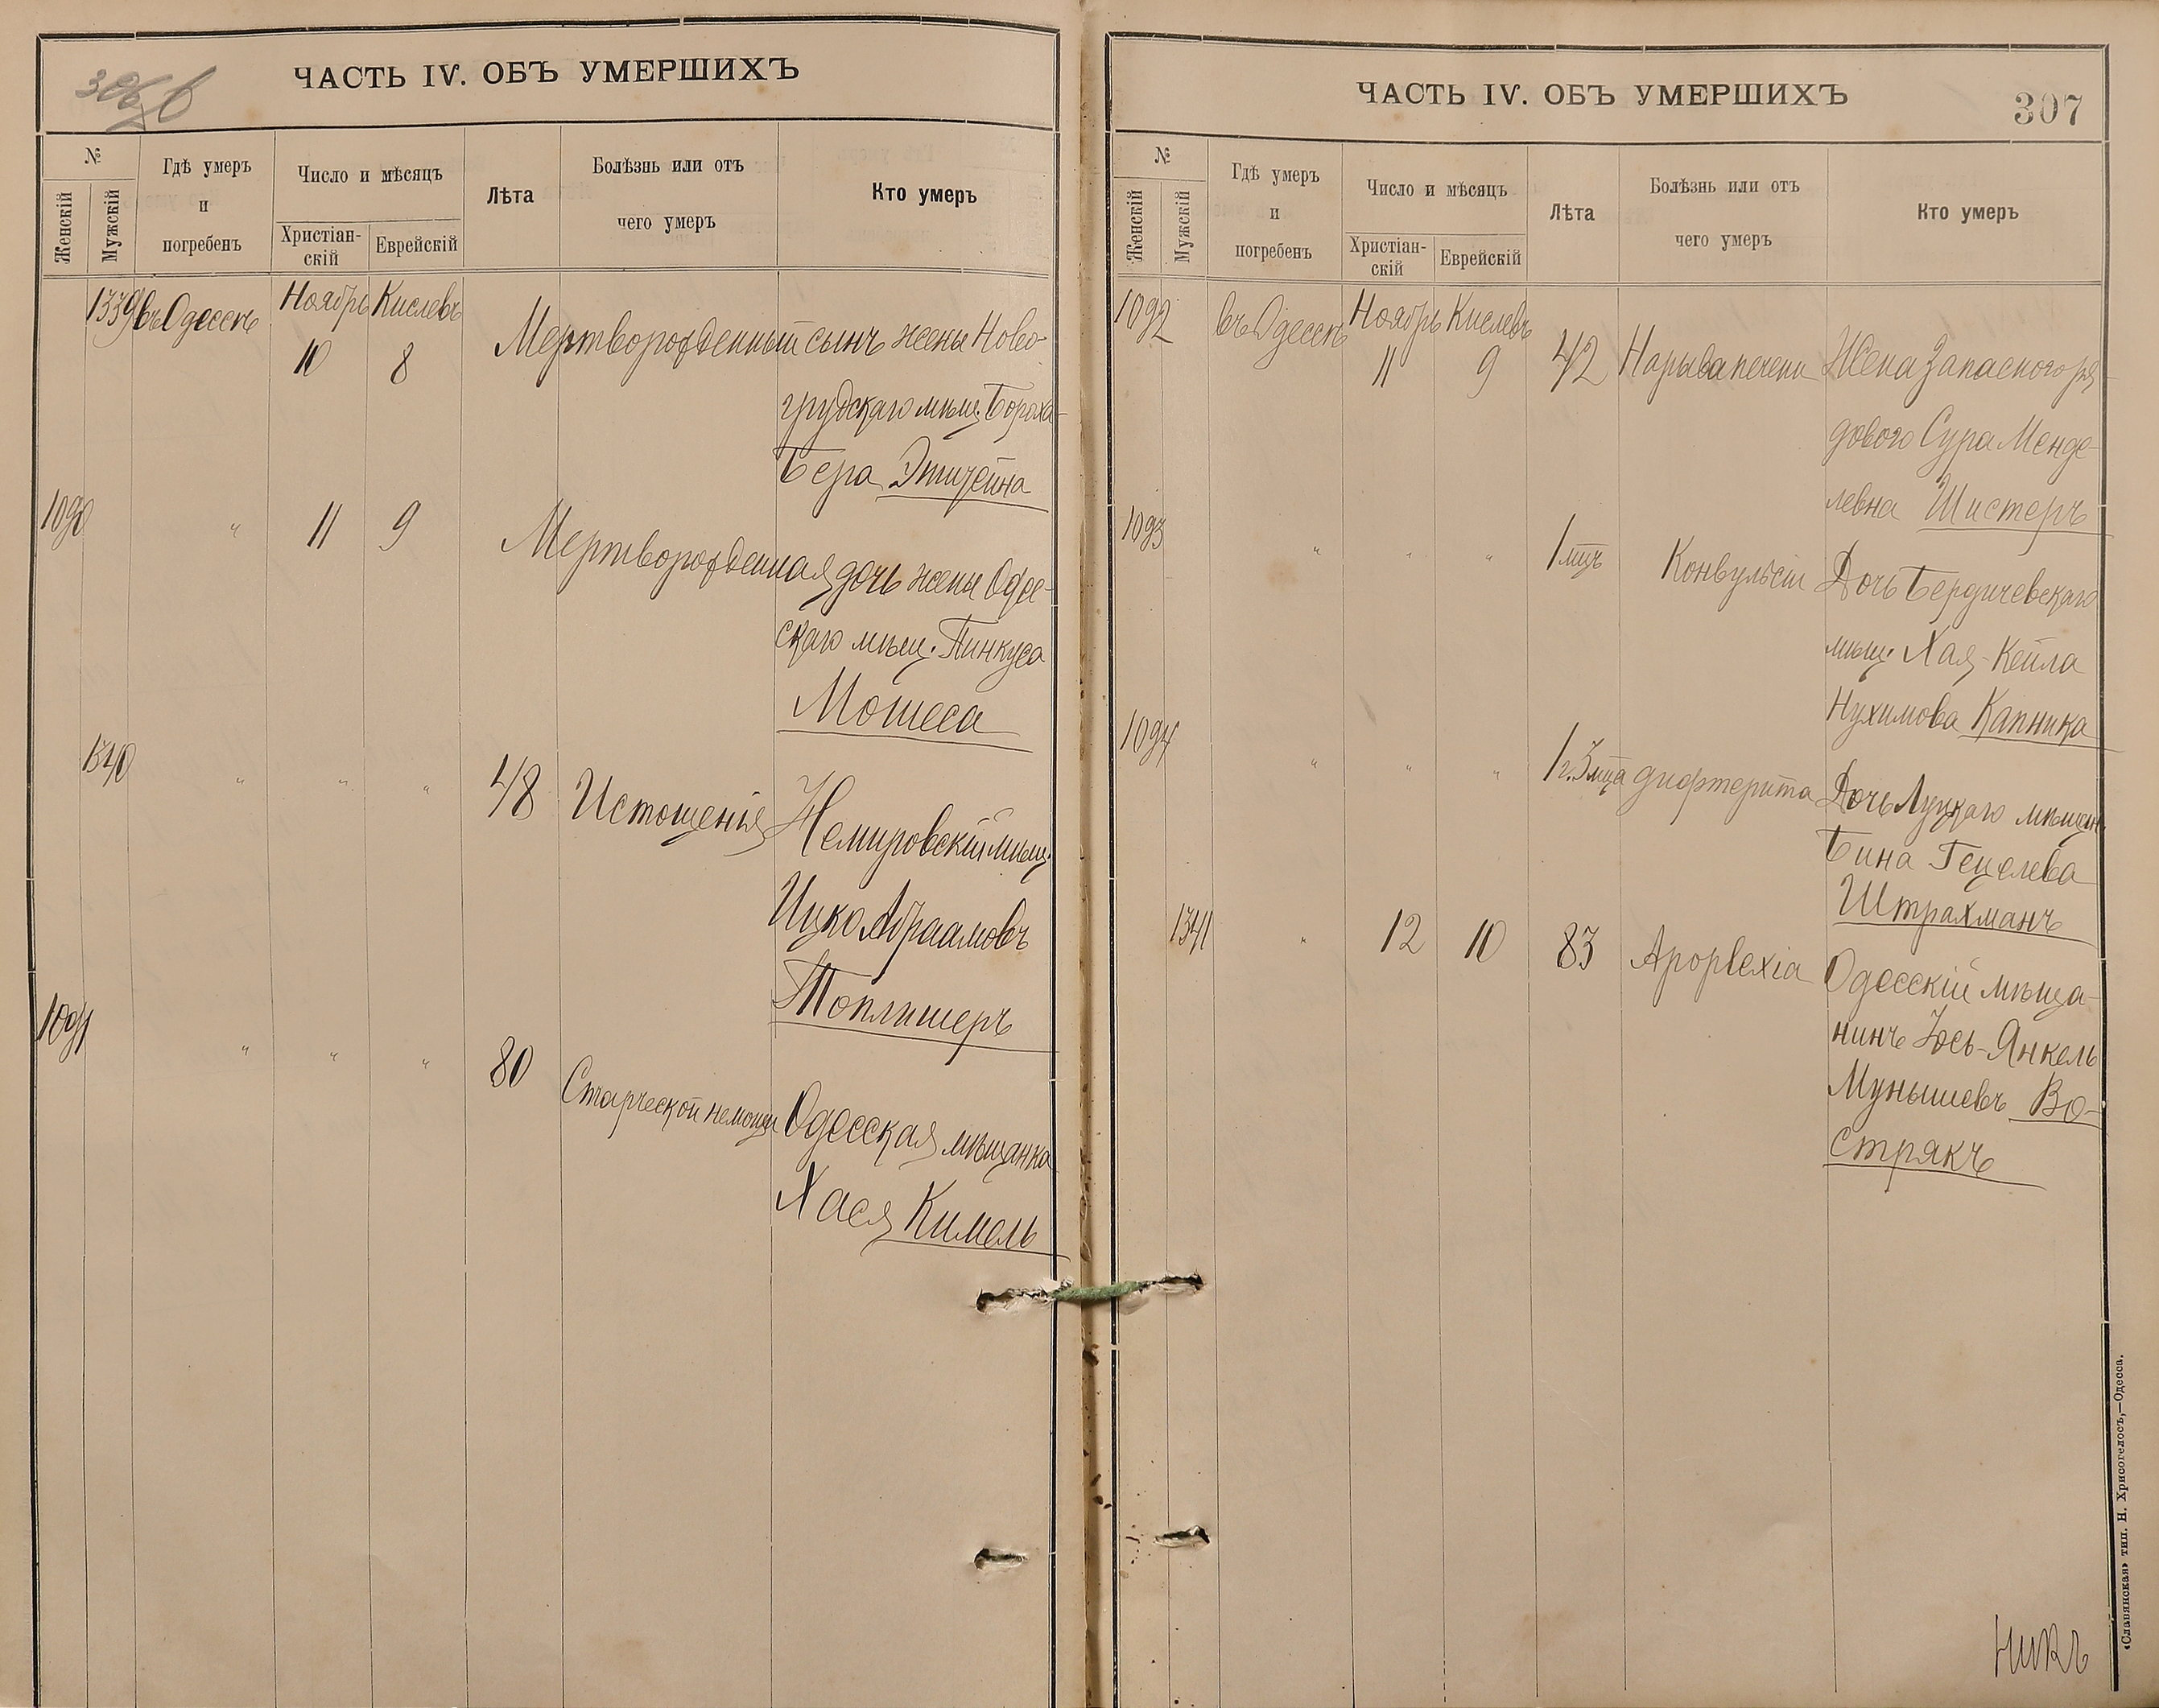 306 в
ЧАСТЬ IV. ОБЪ УМЕРШИХЪ
№
Женскій
Мужскій
Гдѣ умеръ
и
погребенъ
Число и мѣсяцъ
Христіан-
скій
Еврейскій
Лѣта
Болѣзнь или отъ
чего умеръ
Кто умеръ
1339 въ Одессѣ Ноябрь Кислевъ
10 8 Мертворожденный сынъ жены Ново-
грудскаго мѣщ. Бороха-
Бера Эпштейна
1090 " 11 9 Мертворожденная дочь жены Одес-
скаго мѣщ. Пинкуса
Мошеса
1340 " " " 48 Истощенія Немировскій мѣщ.
Ицко Абраамовъ
Топлишеръ
1091 " " " 80 Старческой немощи Одесская мѣщанка
Хася Кимель
ЧАСТЬ IV. ОБЪ УМЕРШИХЪ
307
№
Женскій
Мужскій
Гдѣ умеръ
и
погребенъ
Число и мѣсяцъ
Христіан-
скій
Еврейскій
Лѣта
Болѣзнь или отъ
чего умеръ
Кто умеръ
1092 въ Одессѣ Ноябрь Кислевъ
11 9 42 Нарыва печени Жена Запасного ря-
дового Сура Менде-
левна Шистеръ
1093 " " " 1 мцъ Конвульсіи Дочь Бердичевскаго
мѣщ. Хая-Кейла
Нухимова Капника
1094 " " " 1 г. 3 мца дифтерита Дочь Луцкаго мѣщан.
Бина Гецелева
Штрахманъ
1341 " 12 10 83 Одесскій мѣща-
нинъ Іось-Янкель
Мунышевъ Во-
стрякъ
«Славянская» тип. Н. Хрисогелосъ,—Одесса.